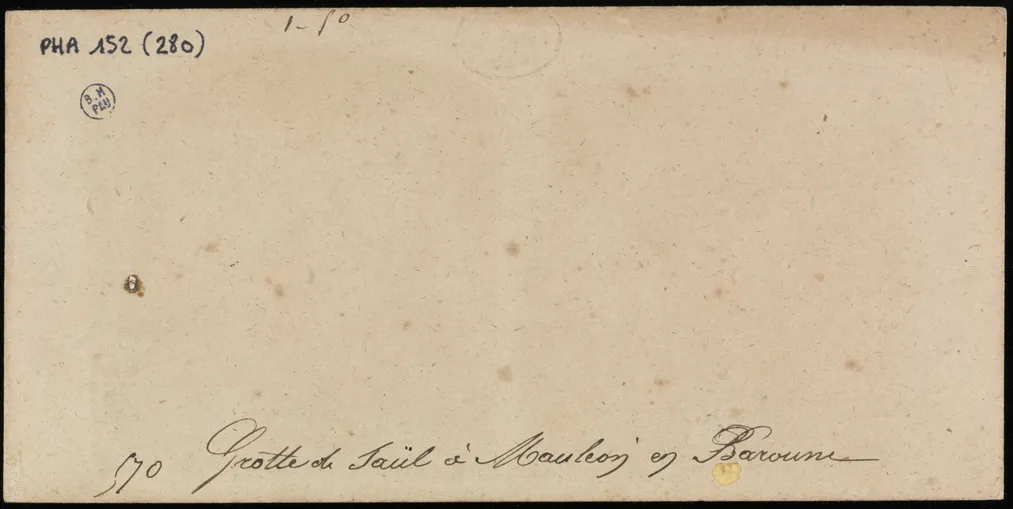 1-50
PHA 152 (280)
B.M
PAU
570 Grotte de Saül à Mauléon en Barousse